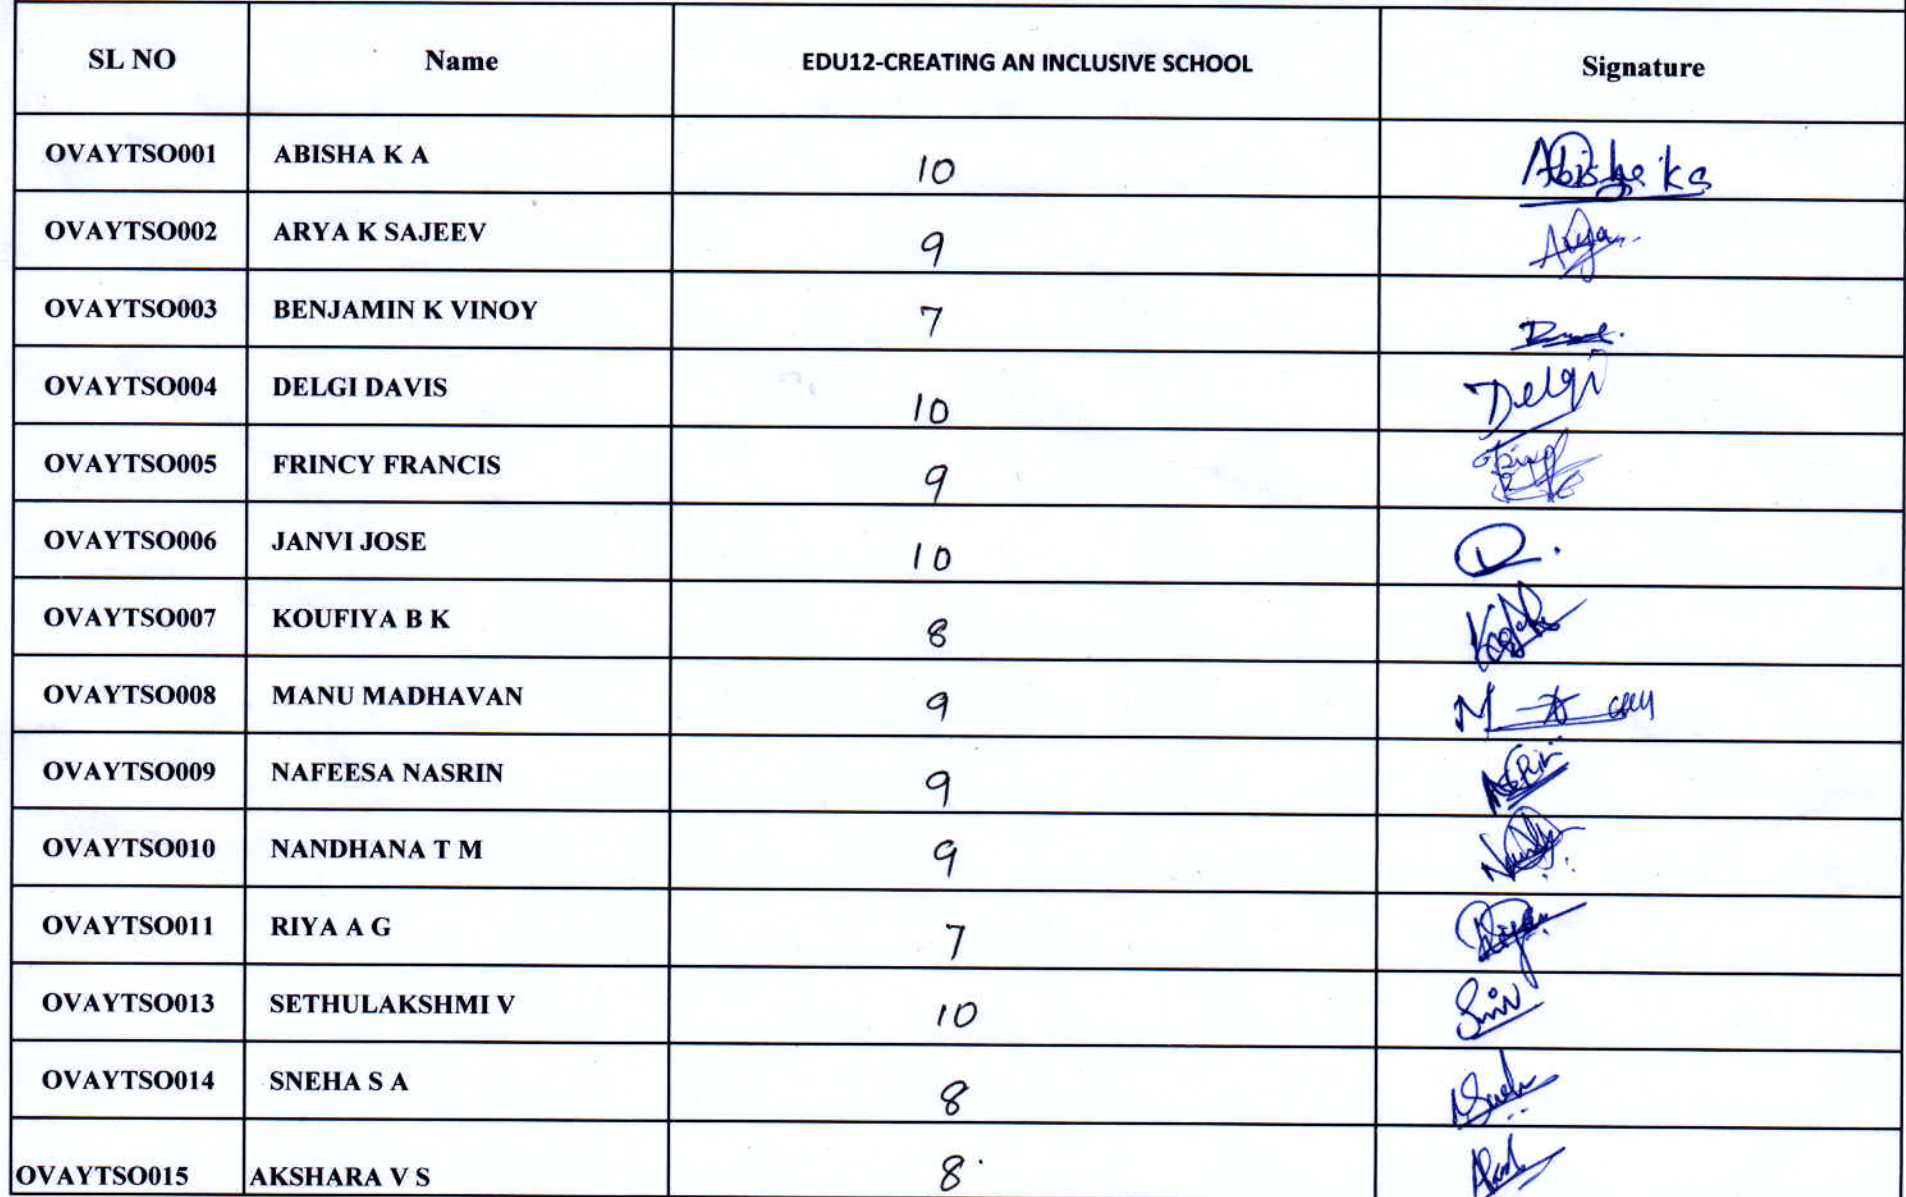 SL NO Name EDU12-CREATING AN INCLUSIVE SCHOOL Signature
OVAYTSO001 ABISHA K A 10 Abisha K a
OVAYTSO002 ARYA K SAJEEV 9 Arya
OVAYTSO003 BENJAMIN K VINOY 7
OVAYTSO004 DELGI DAVIS 10 Delgi
OVAYTSO005 FRINCY FRANCIS 9
OVAYTSO006 JANVI JOSE 10
OVAYTSO007 KOUFIYA B K 8
OVAYTSO008 MANU MADHAVAN 9
OVAYTSO009 NAFEESA NASRIN 9
OVAYTSO010 NANDHANA T M 9
OVAYTSO011 RIYA A G 7
OVAYTSO013 SETHULAKSHMI V 10
OVAYTSO014 SNEHA S A 8
OVAYTSO015 AKSHARA V S 8